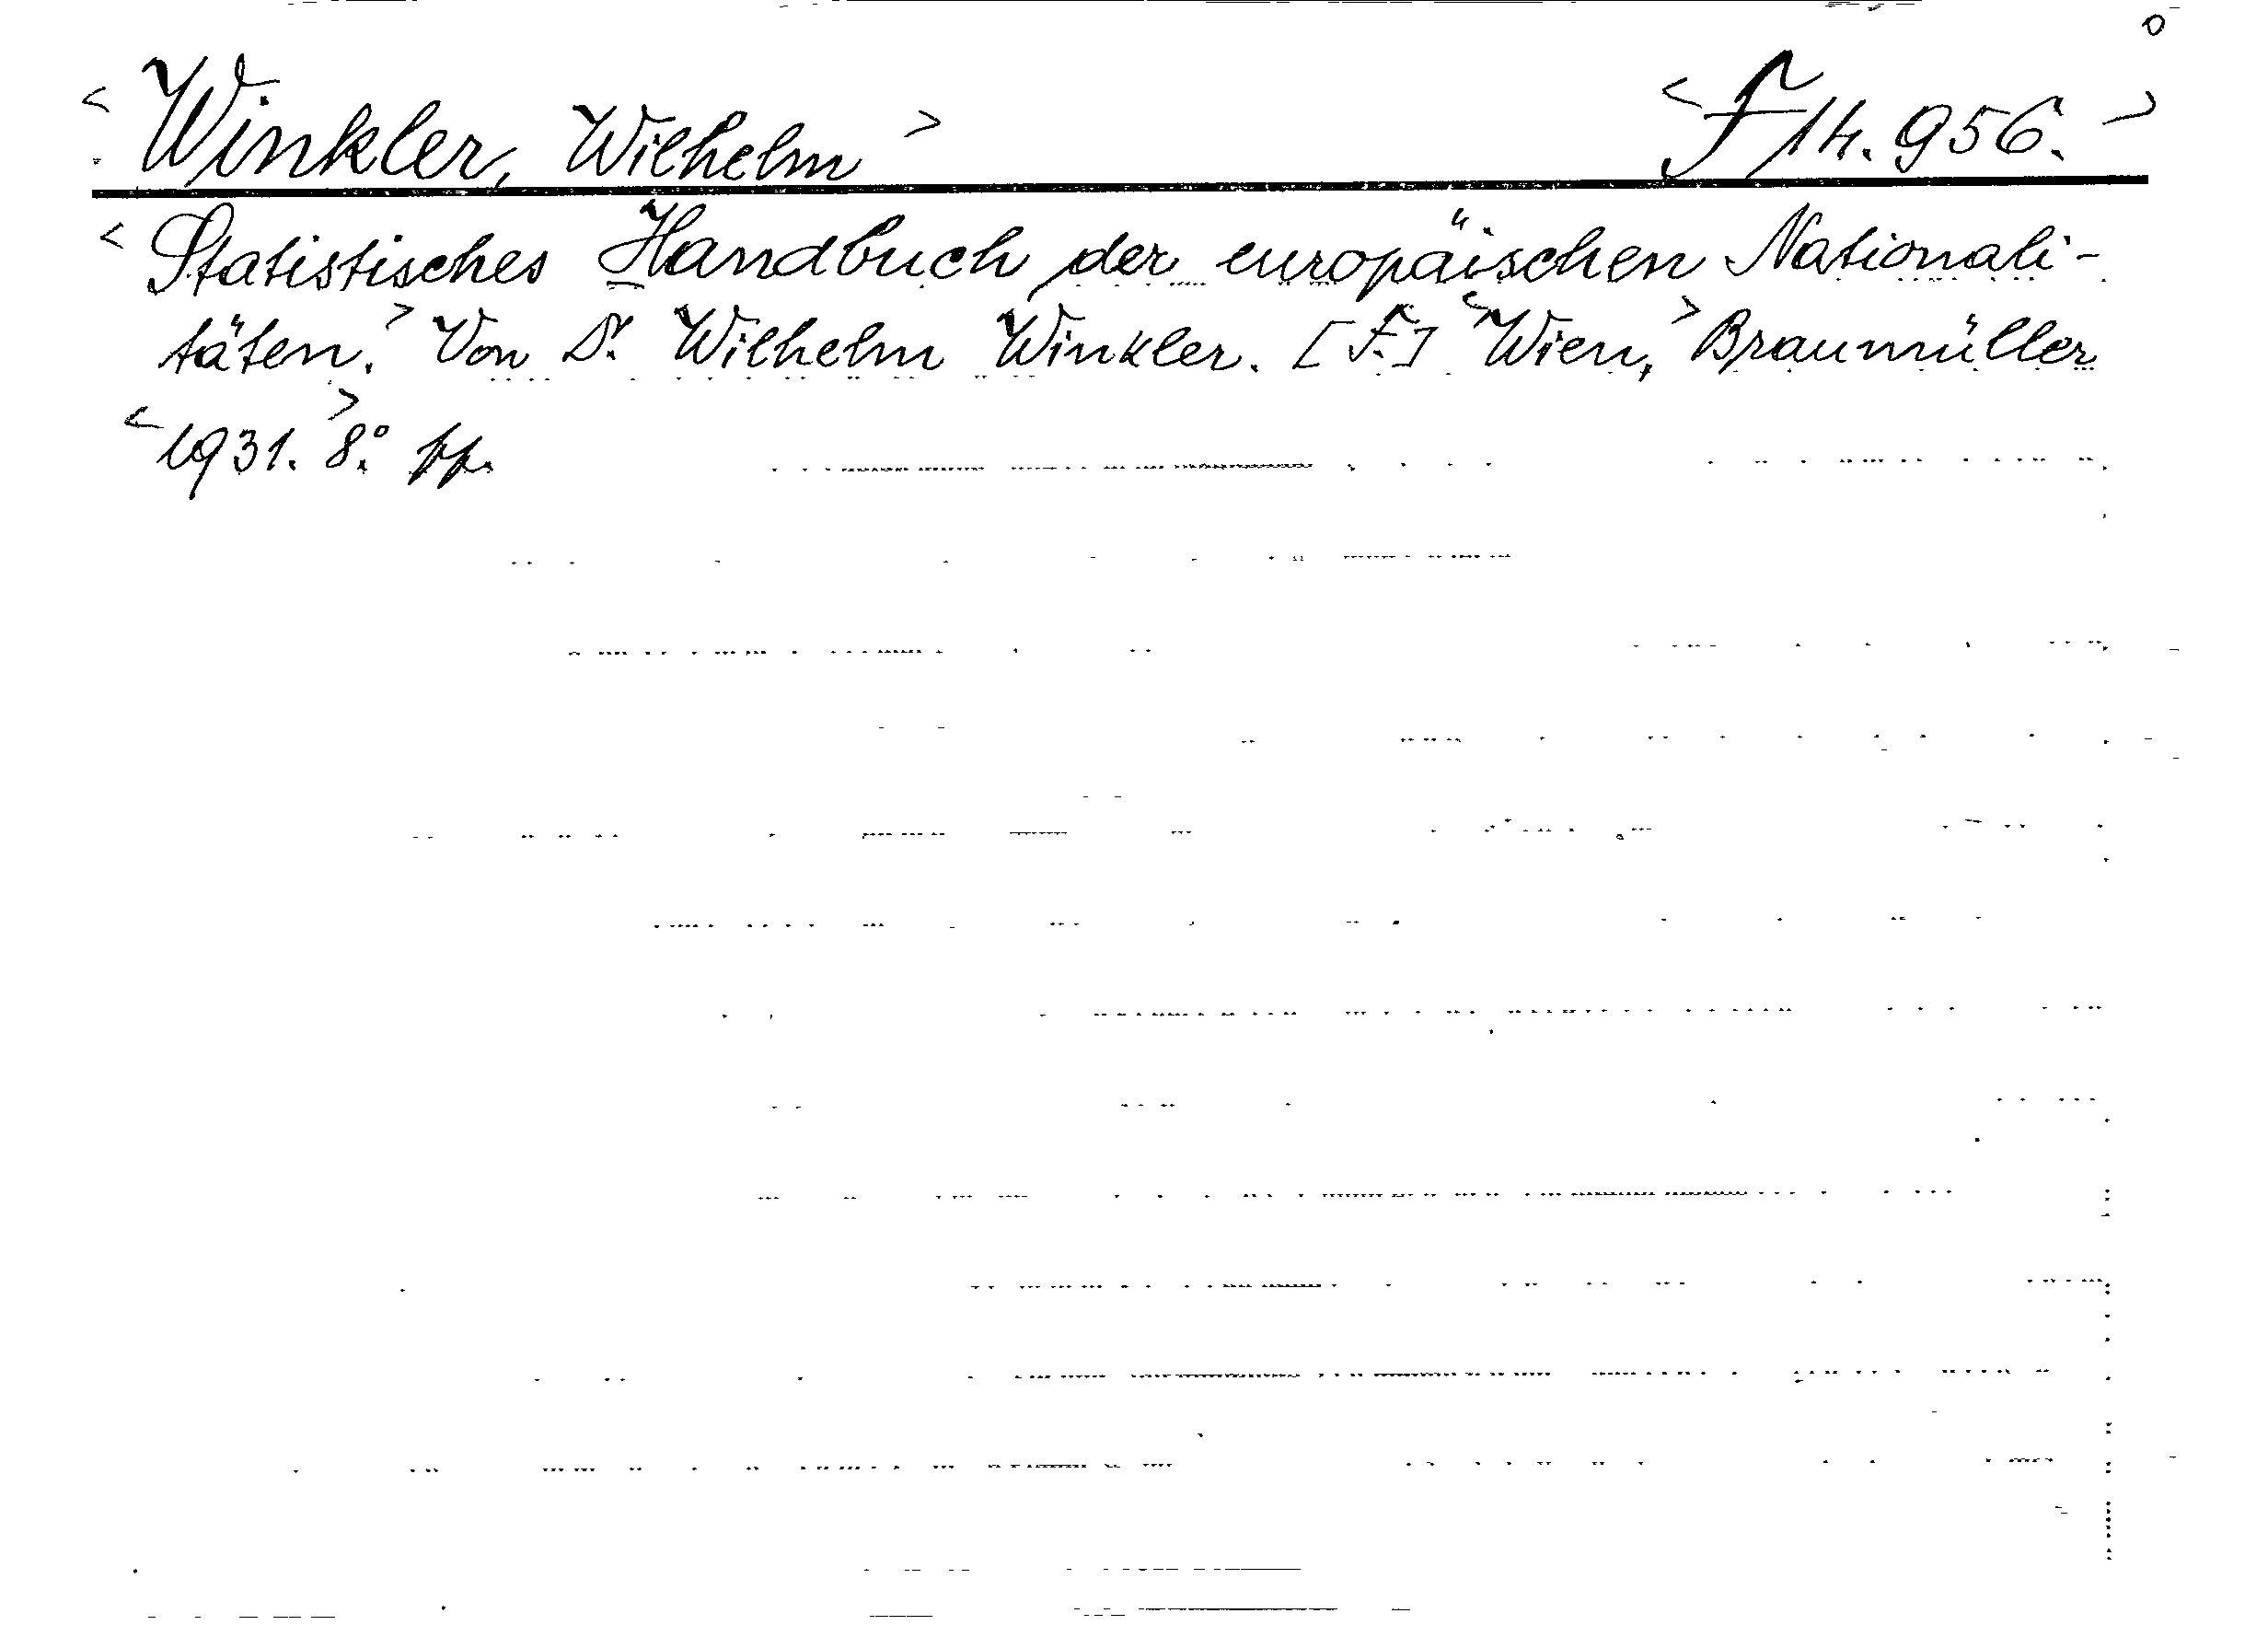 <Winkler, Wilhelm> <F 14.956.>
<Statistisches Handbuch der europäischen Nationali-
täten.> Von Dr. Wilhelm Winkler. [F.] <Wien,> Braumüller
<1931.> 8.° pp.